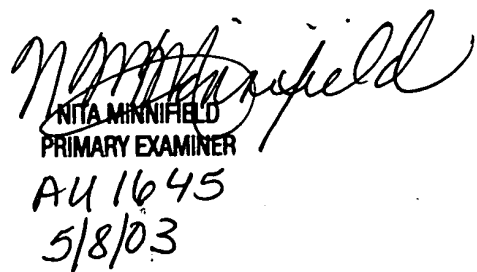 N M Minnifield
NITA MINNIFIELD
PRIMARY EXAMINER
AU 1645
5/8/03